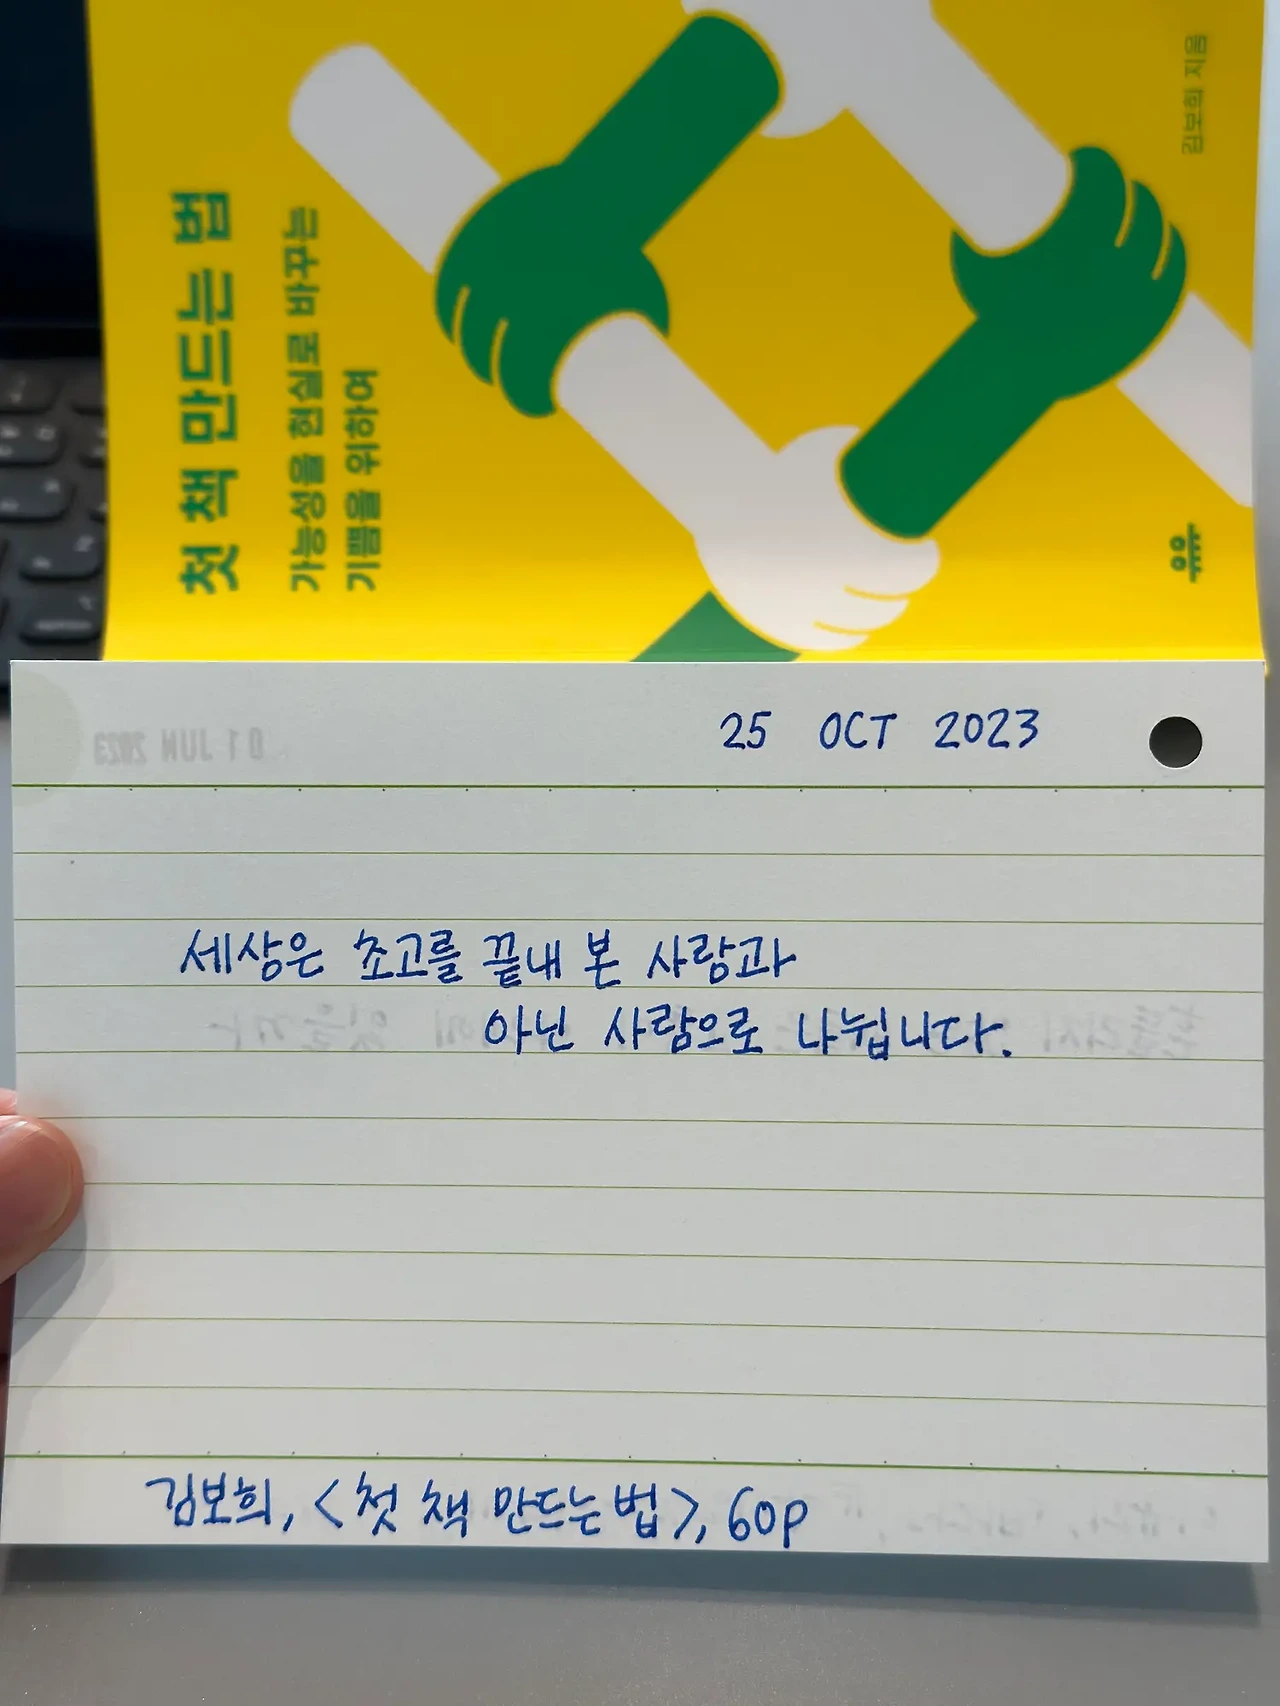 첫 책 만드는 법
가능성을 현실로 바꾸는
기쁨을 위하여
김보희 지음
유유
25 OCT 2023
01 JUN 2023
세상은 초고를 끝내 본 사람과
아닌 사람으로 나뉩니다.
김보희, <첫 책 만드는 법>, 60p